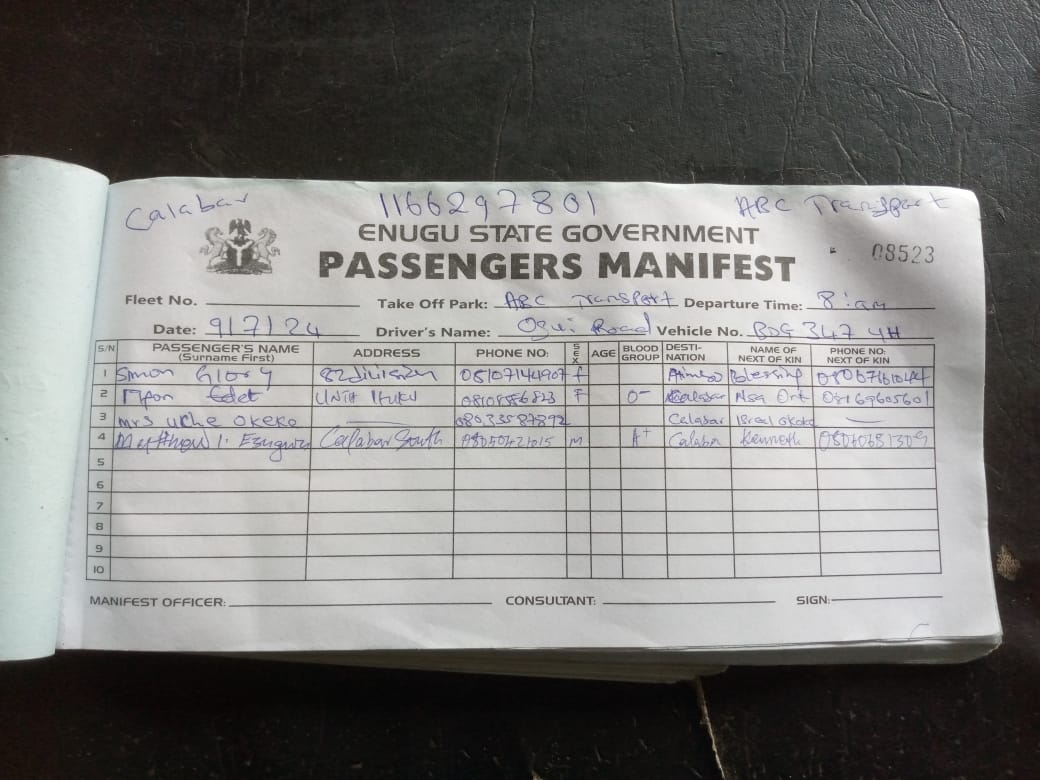 Calabar 1166297801 ABC Transport
ENUGU STATE GOVERNMENT
PASSENGERS MANIFEST 08523
Fleet No. Take Off Park: ABC Transport Departure Time: 8:am
Date: 9/7/24 Driver's Name: Ogui Road Vehicle No. BDG 347 YH
S/N PASSENGER'S NAME (Surname First) ADDRESS PHONE NO: SEX AGE BLOOD GROUP DESTI-NATION NAME OF NEXT OF KIN PHONE NO: NEXT OF KIN
1 Simon Glory 82 division 08107144907 f Blessing
2 Edet UNTH ITUKU F O- Calabar Nsa 08169605601
3 Mrs Uche Okeke 08033587892 Calabar
4 Matthew I. Calabar South 08050421015 M A+ Calabar Kenneth
5
6
7
8
9
10
MANIFEST OFFICER: CONSULTANT: SIGN: